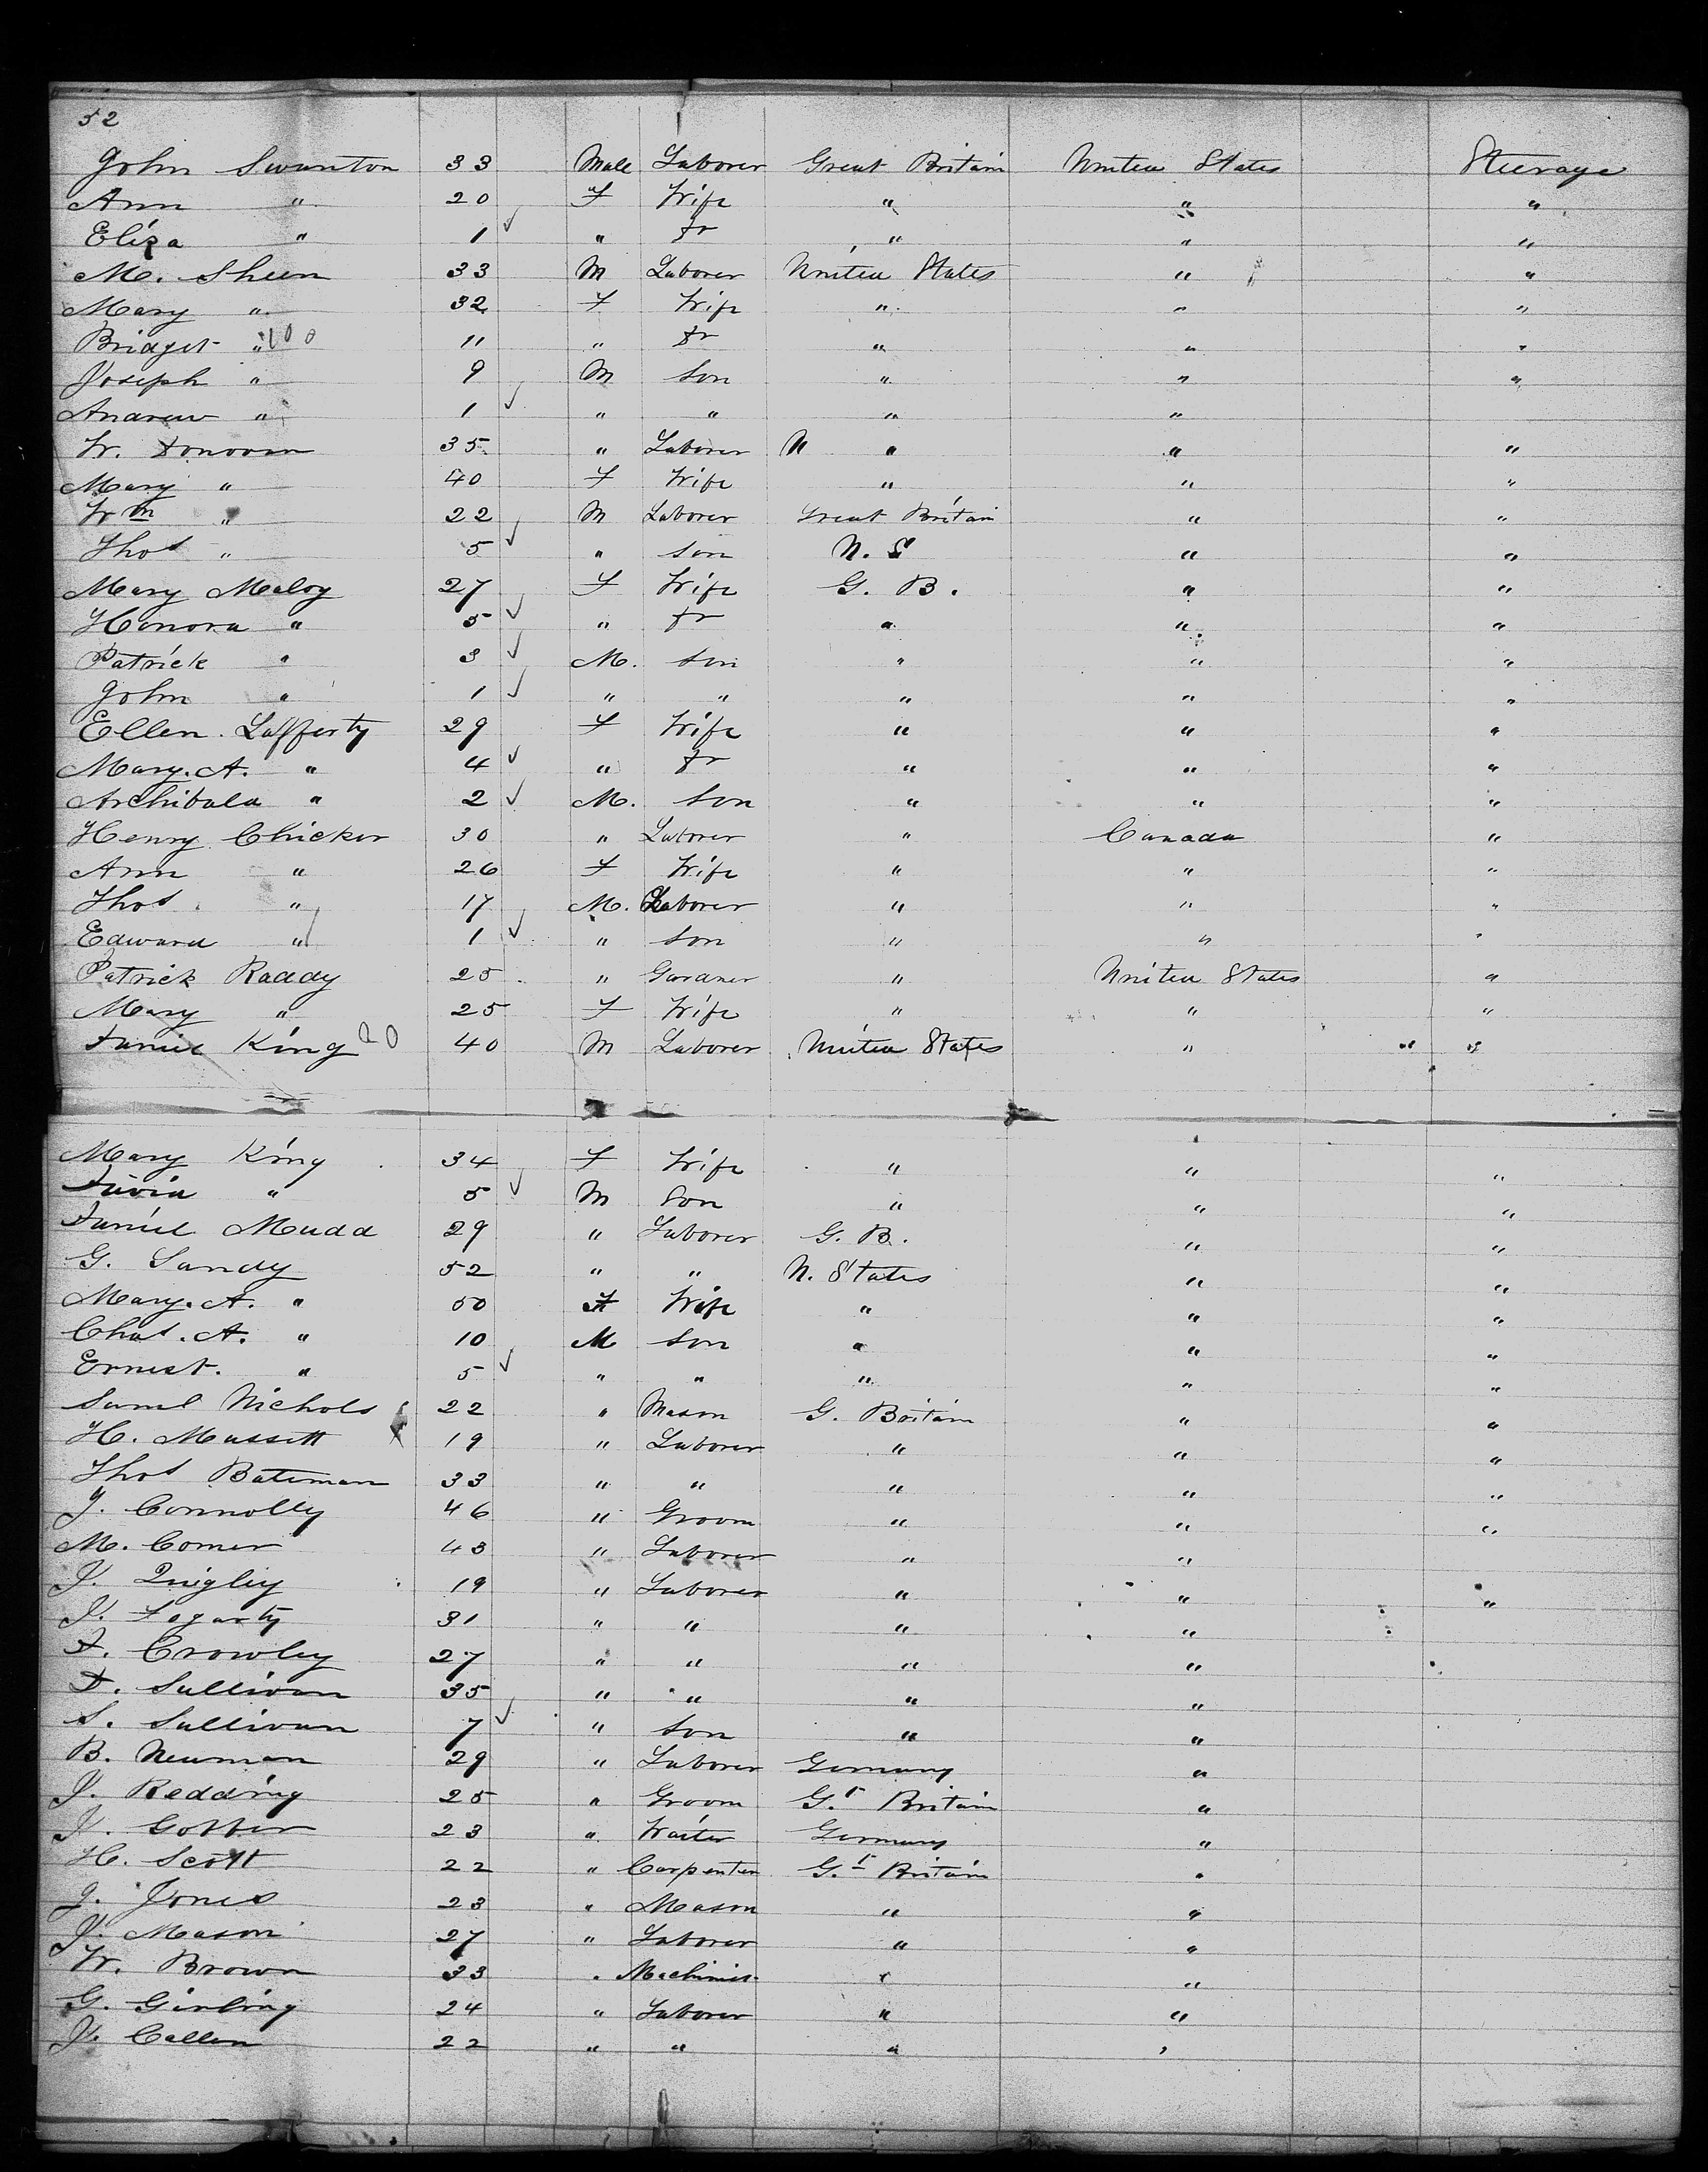 52
John Swanton 33 Male Laborer Great Britain United States Steerage
Ann " 20 F Wife " " "
Eliza " 1 ✓ " Dr " " "
M. Sheen 33 M Laborer United States " "
Mary " 32 F Wife " " "
Bridget " 100 11 " Dr " " "
Joseph " 9 M Son " " "
Andrew " 1 ✓ " " " "
W. Donovan 35 " Laborer U " " "
Mary " 40 F Wife " " "
Wm " 22 M Laborer Great Britain " "
Thos " 5 ✓ " Son U. S " "
Mary Maloy 27 F Wife G. B. " "
Honora " 5 ✓ " Dr " " "
Patrick " 3 ✓ M. Son " " "
John " 1 ✓ " " " " "
Ellen Lafferty 29 F Wife " " "
Mary. A. " 4 ✓ " Dr " " "
Archibald " 2 ✓ M. Son " " "
Henry Chicker 30 " Laborer " Canada "
Ann " 26 F Wife " " "
Thos " 17 M. Laborer " " "
Edward " 1 ✓ " Son " " "
Patrick Raddy 25 " Gardner " United States "
Mary " 25 F Wife " " "
Daniel King 20 40 M Laborer United States " " "
Mary King 34 F Wife " " "
David " 5 ✓ M Son " " "
Daniel Mudd 29 " Laborer G. B. " "
G. Sandy 52 " " U. States " "
Mary. A. " 50 F Wife " " "
Chas. A. " 10 M Son " " "
Ernest. " 5 ✓ " " " " "
Saml Nichols 22 " Mason G. Britain " "
H. Massett 19 " Laborer " " "
Thos Bateman 33 " " " " "
J. Connolly 46 " Groom " " "
M. Comer 43 " Laborer " "
J. Quigley 19 " Laborer " " "
J. Fogarty 31 " " " "
D. Crowley 27 " " " "
D. Sullivan 35 " " " "
S. Sullivan 7 ✓ " Son " "
B. Neuman 29 " Laborer Germany "
J. Redding 25 " Groom G.t Britain "
J. 23 " Waiter Germany "
H. Scott 22 " Carpenter G.t Britain "
J. Jones 23 " Mason " "
J. Mason 27 " Laborer " "
W. Brown 33 " Machinist " "
G. Girling 24 " Laborer " "
J. Callen 22 " " " "